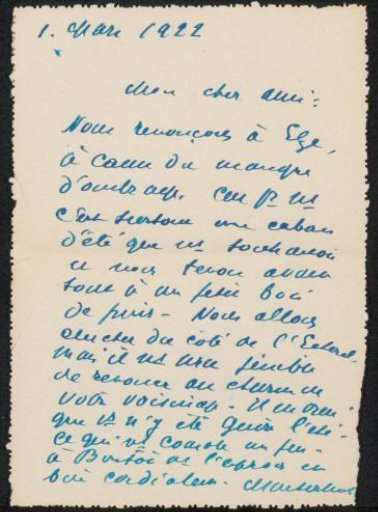 1. Mars 1922
Mon cher ami:
Nous renonçons à Èze,
à cause du manque
d'ombrage. Car pr ns
c'est surtout une cabane
d'été que ns souhaitons
et nous tenons avant
tout à un petit bois
de pins – Nous allons
chercher du côté de l'Esterel
mais il ns sera pénible
de renoncer au charme de
votre voisinage. Il
que vs n'y êtes guère l'été.
ce qui ns console un peu –
à Bientôt
bien cordialement